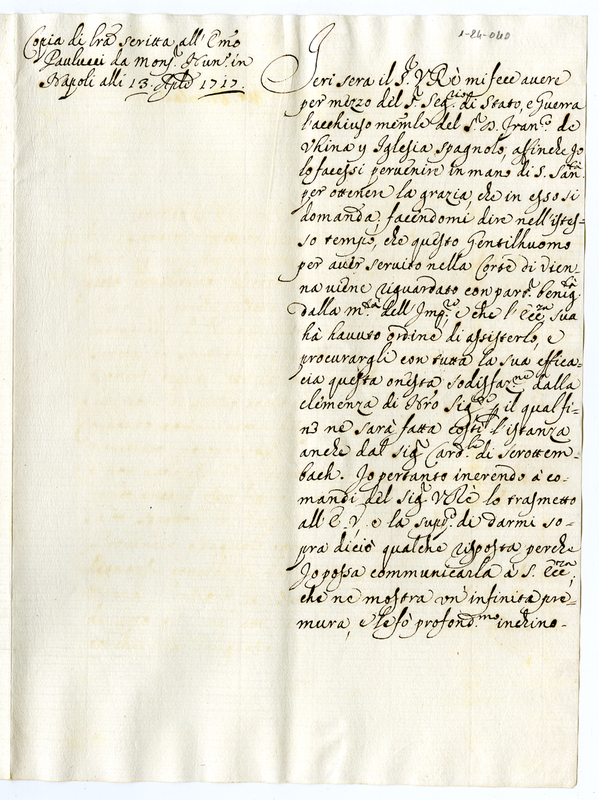 1-24-040
Copia di lrã scritta all' Emõ
Paulucci da mons.r Nun.o in
Napoli alli 13. Aprile 1717
Ieri sera il S.r VRè mi fece avere
per mezzo del S.r Seg.rio di Stato, e Guerra
l'acchiuso memle del S.r D. Fran.co de
Vhina y Iglesia spagnolo, affinche Io
lo facessi pervenire in mano di S. San.tà
per ottenere la grazia, che in esso si
domanda, facendomi dire nell'istes=
so tempo, che questo Gentilhuomo
per aver servito nella Corte di Vien=
na viene riguardato con part.r benig.tà
dalla m.tà dell'Imp.re e che l'Ecc.za sua
hà havuto ordine di assisterlo, e
procurargli con tutta la sua effica=
cia questa onesta sodisfaz.ne dalla
clemenza di Nrõ Sig.re p il qual fi=
ne ne sarà fatta costì l'istanza
anche dal sig.r Card.le di Scrottem=
bach. Io pertanto inerendo à co=
mandi del sig.r VRè lo trasmetto
all'E. V. e la supp.co di darmi so=
pra di ciò qualche risposta perche
Io possa communicarla a S. Ecc.za,
che ne mostra un'infinita pre=
mura, e le fo profond.mo inchino=